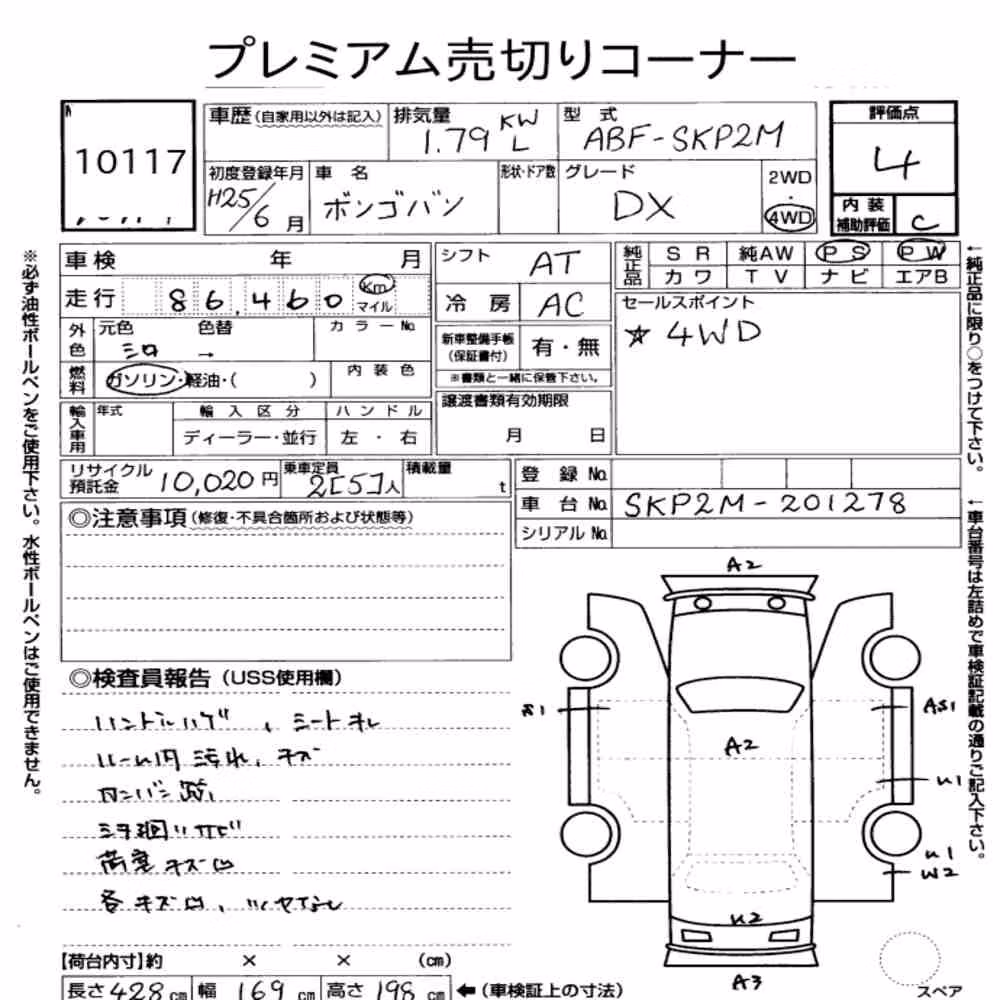 プレミアム売切りコーナー
A
10117
車歴(自家用以外は記入)
排気量
1.79 KW L
型 式
ABF-SKP2M
評価点
4
初度登録年月
H25/6月
車 名
ボンゴバン
形状・ドア数
グレード
DX
2WD
・
4WD
内装
補助評価
C
車検 年 月
走行 86,460 Km マイル
シフト AT
冷房 AC
純正品
SR 純AW PS PW
カワ TV ナビ エアB
セールスポイント
☆ 4WD
外色
元色 色替
シロ →
カラーNo.
燃料
ガソリン・軽油・( )
内装色
新車整備手帳
(保証書付)
有・無
※書類と一緒に保管下さい。
輸入車用
年式
輸入区分
ハンドル
ディーラー・並行
左・右
譲渡書類有効期限
月 日
リサイクル
預託金
10,020円
乗車定員
2[5]人
積載量
t
登録No.
車台No. SKP2M-201278
シリアルNo.
◎注意事項(修復・不具合箇所および状態等)
◎検査員報告(USS使用欄)
ハンドルハゲ、シートキレ
ルーム内 汚れ、キズ
カンバン跡
シタ廻りサビ
荷室 キズ凹
各キズ凹、
A2
S1
AS1
A2
U1
U1
W2
U2
A3
スペア
【荷台内寸】約 × × (cm)
長さ428cm 幅169cm 高さ198cm ←(車検証上の寸法)
※必ず油性ボールペンをご使用下さい。水性ボールペンはご使用できません。
←純正品に限り○をつけて下さい。
←車台番号は左詰めで車検証記載の通りご記入下さい。